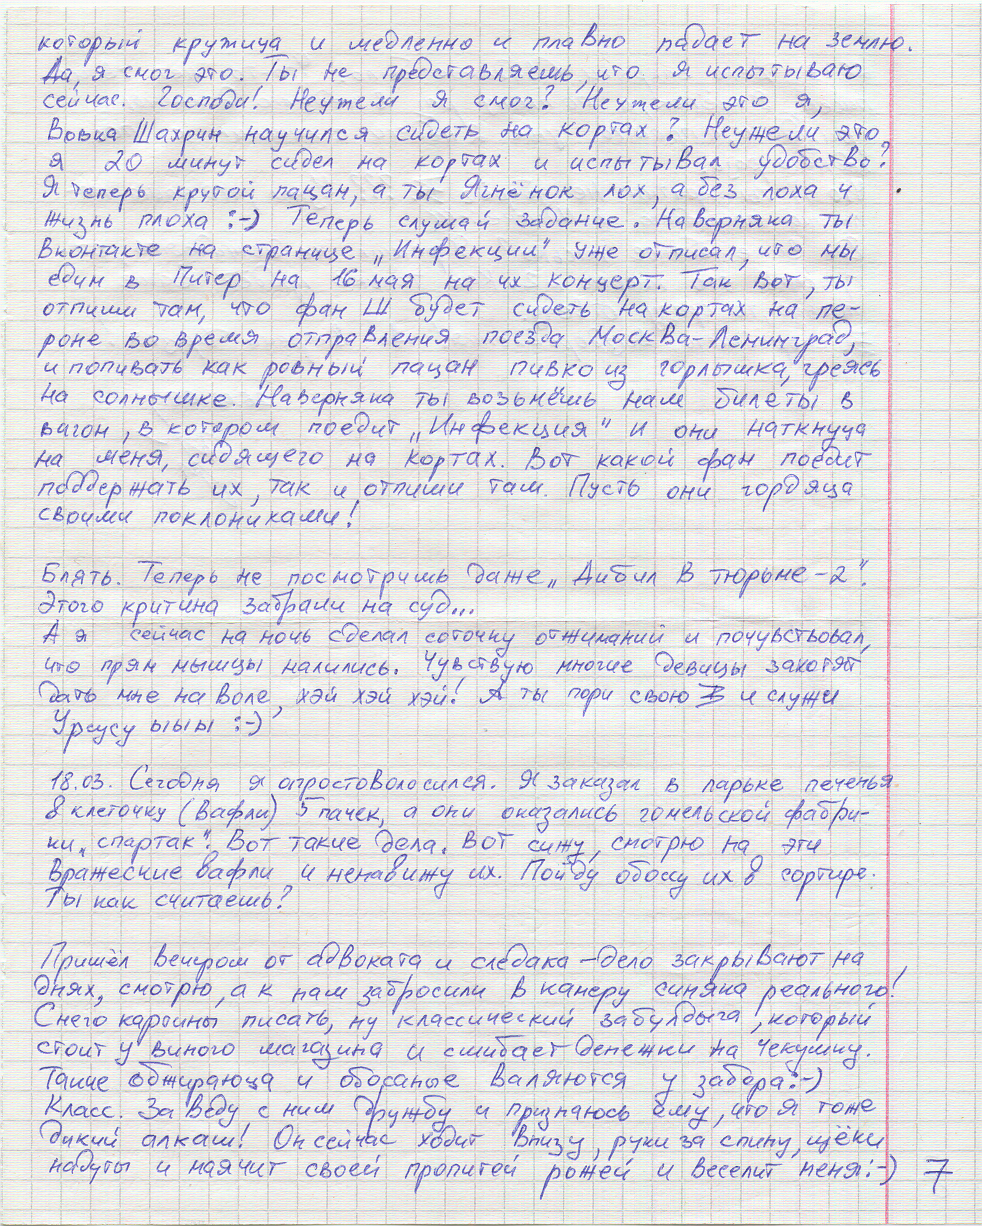 который кружица и медленно и плавно падает на землю.
Да, я смог это. Ты не представляешь, что я испытываю
сейчас. Господи! Неужели я смог? Неужели это я,
Вовка Шахрин научился сидеть на кортах? Неужели это
я 20 минут сидел на кортах и испытывал удобство?
Я теперь крутой пацан, а ты Ягнёнок лох, а без лоха и
жизнь плоха :-) Теперь слушай задание. Наверняка ты
Вконтакте на странице „Инфекции" уже отписал, что мы
едим в Питер на 16 мая на их концерт. Так вот, ты
отпиши там, что фан Ш будет сидеть на кортах на пе-
роне во время отправления поезда Москва-Ленинград,
и попивать как ровный пацан пивко из горлышка, греясь
на солнышке. Наверняка ты возьмёшь нам билеты в
вагон, в котором поедит „Инфекция" и они наткнуца
на меня, сидящего на кортах. Вот какой фан поедит
поддержать их, так и отпиши там. Пусть они гордяца
своими поклониками!
Блять. Теперь не посмотришь даже „Дибил в тюрьме-2".
Этого критина забрали на суд...
А я сейчас на ночь сделал соточку отжиманий и почувствовал,
что прям мышцы налились. Чувствую многие девицы захотят
дать мне на воле, хэй хэй хэй! А ты пори свою и служи
Урсусу ыыы :-)
18.03. Сегодня я опростоволосился. Я заказал в ларьке печенья
в клеточку (вафли) 5 пачек, а они оказались гомельской фабри-
ки „спартак". Вот такие дела. Вот сижу, смотрю на эти
вражеские вафли и ненавижу их. Пойду обоссу их в сортире.
Ты как считаешь?
Пришёл вечером от адвоката и следака - дело закрывают на
днях, смотрю, а к нам забросили в камеру синяка реального!
Снего картины писать, ну классический забулдыга, который
стоит у виного магазина и сшибает денежки на чекушку.
Такие обжираюца и обосаные валяются у забора :-)
Класс. Заведу с ним дружбу и признаюсь ему, что я тоже
дикий алкаш! Он сейчас ходит внизу, руки за спину, щёки
надуты и маячит своей пропитой рожей и веселит меня :-) 7